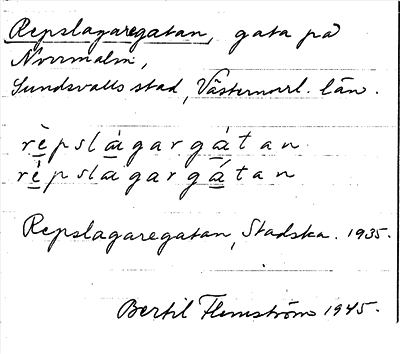 Repslagaregatan, gata på
Norrmalm,
Sundsvalls stad, Västernorrl. län.
rèpslágargátan
répslagargátan
Repslagaregatan, Stadska. 1935.
Bertil Flemström 1945.